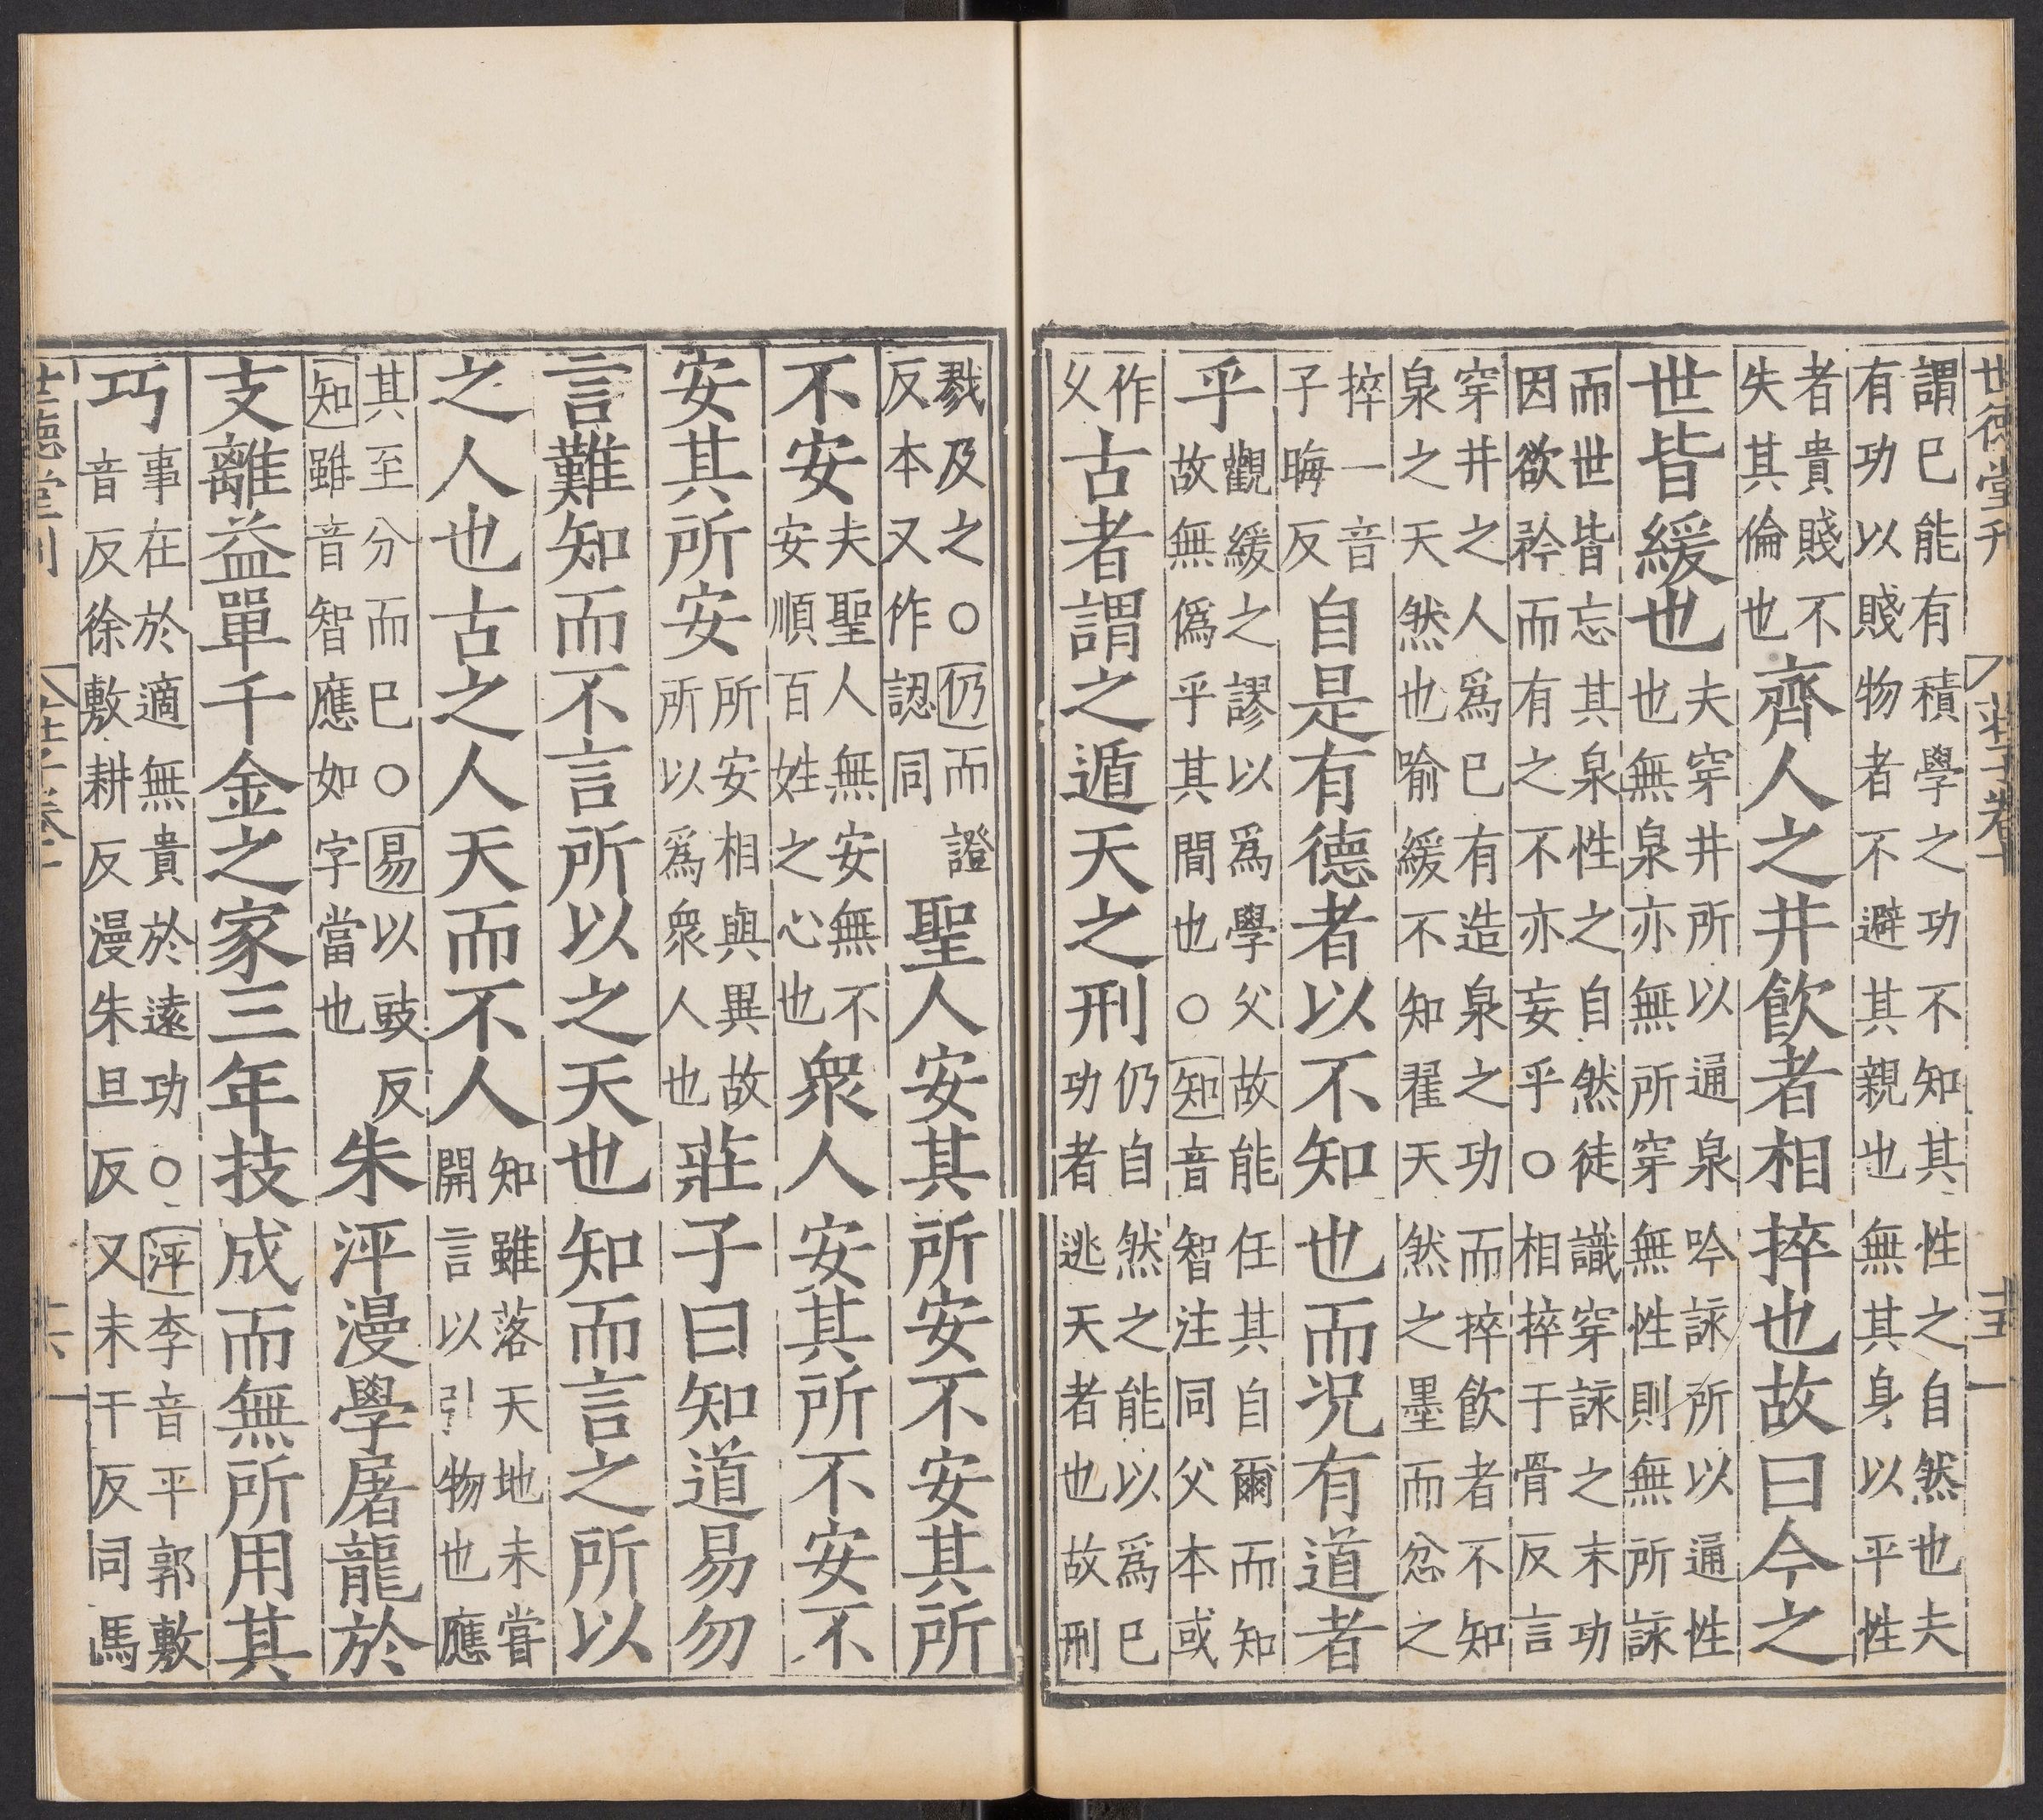 世德堂刊 莊子卷十 十五
謂已能有積學之功不知其性之自然也夫
有功以賤物者不避其親也無其身以平性
者貴賤不
失其倫也
齊人之井飲者相捽也故曰今之
世皆緩也
夫穿井所以通泉吟詠所以通性
也無泉亦無所穿無性則無所詠
而世皆忘其泉性之自然徒識穿詠之末功
因欲矜而有之不亦妄乎○相捽于骨反言
穿井之人爲已有造泉之功而捽飲者不知
泉之天然也喻緩不知翟天然之墨而忿之
捽一音
子晦反
自是有德者以不知也而况有道者
乎
觀緩之謬以爲學父故能任其自爾而知
故無僞乎其間也○知音智注同父本或
作
父
古者謂之遁天之刑
仍自然之能以爲已
功者逃天者也故刑
戮及之○仍而證
反本又作認同
聖人安其所安不安其所
不安
夫聖人無安無不
安順百姓之心也
衆人安其所不安不
安其所安
所安相與異故
所以爲衆人也
莊子曰知道易勿
言難知而不言所以之天也知而言之所以
之人也古之人天而不人
知雖落天地未嘗
開言以引物也應
其至分而已○易以豉反
知雖音智應如字當也
朱泙漫學屠龍於
支離益單千金之家三年技成而無所用其
巧
事在於適無貴於遠功○泙李音平郭敷
音反徐敷耕反漫朱旦反又未干反同馬
世德堂刊 莊子卷十 十六